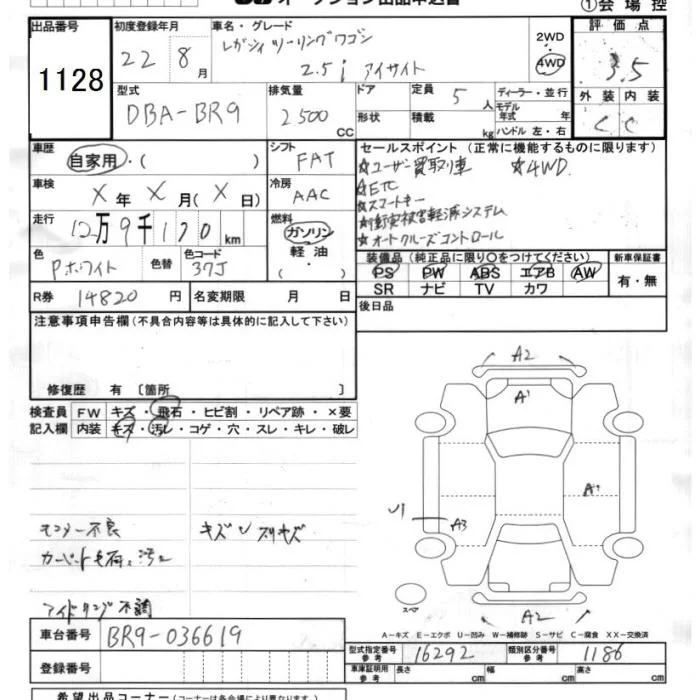 オークション出品申込書
①会場控
出品番号 初度登録年月 車名・グレード 2WD・4WD 評価点
1128 22年 8月 レガシィツーリングワゴン 2.5i アイサイト 3.5
外装 内装
C C
型式 排気量 ドア 定員 5人 ディーラー・並行
モデル年式 年
DBA-BR9 2500 CC 形状 積載 kg ハンドル 左・右
車歴 シフト セールスポイント (正常に機能するものに限ります)
自家用・( ) FAT ★ユーザー買取り車 ★4WD
車検 冷房 ★ETC
X年 X月(X日) AAC ★スマートキー
走行 燃料 ★衝突被害軽減システム
12万9千170km ガソリン・軽油・( ) ★オートクルーズコントロール
色 色替 色コード 装備品 (純正品に限り○をつけてください) 新車保証書
Pホワイト 37J PS PW ABS エアB AW 有・無
SR ナビ TV カワ
R券 14820円 名変期限 月 日 後日品
注意事項申告欄 (不具合内容等は具体的に記入して下さい)
修復歴 有 〔箇所 〕
検査員 FW キズ・飛石・ヒビ割・リペア跡・×要
記入欄 内装 キズ・汚レ・コゲ・穴・スレ・キレ・破レ
A2
A1
A1
U1
A3
モニター不良 キズU スリキズ
カーペット毛荷、汚レ
アイドリング不調
スペア
A2
A-キズ E-エクボ U-凹み W-補修跡 S-サビ C-腐食 XX-交換済
車台番号 BR9-036619
型式指定番号 参考 16292 類別区分番号 参考 1186
登録番号 車庫証明用 参考 長さ cm 幅 cm 高さ cm
希望出品コーナー (コーナーは各会場により異なります。)